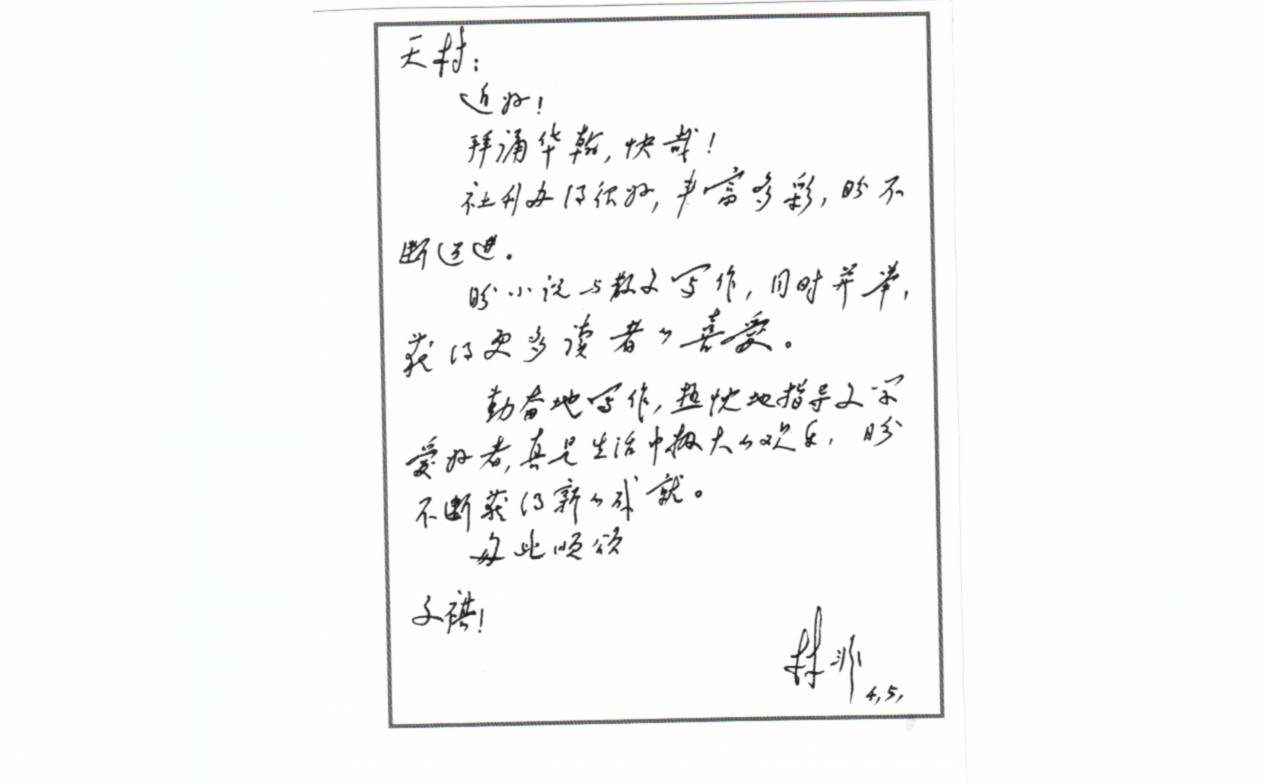 天村：
近好！
拜诵华翰，快哉！
社刊办得很好，丰富多彩，盼不
断迈进。
盼小说与散文写作，同时并举，
获得更多读者的喜爱。
勤奋地写作，热忱地指导文学
爱好者，真是生活中极大的欢乐，盼
不断获得新的成就。
专此顺颂
文祺！
林非
4，5，